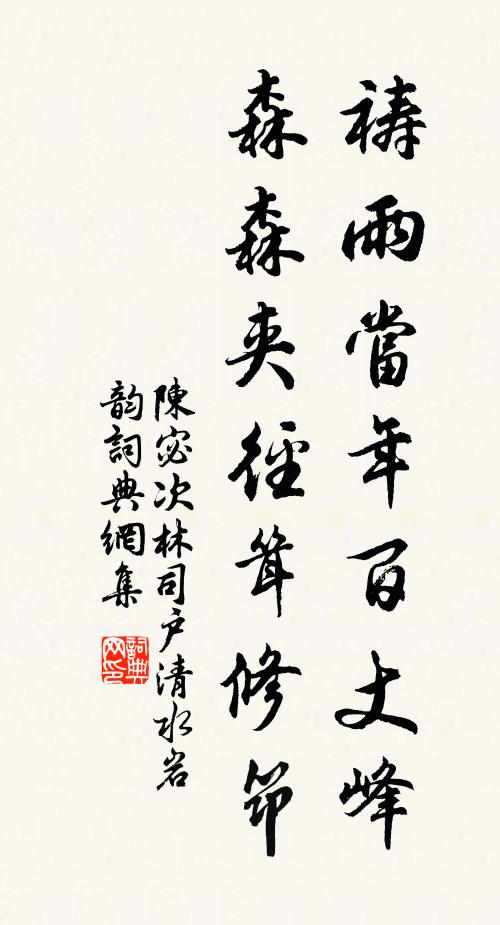 祷雨當年百丈峰
森森夾徑聳修筇
陳宓次林司戶清水岩
韵詞典網集
詞典
网印